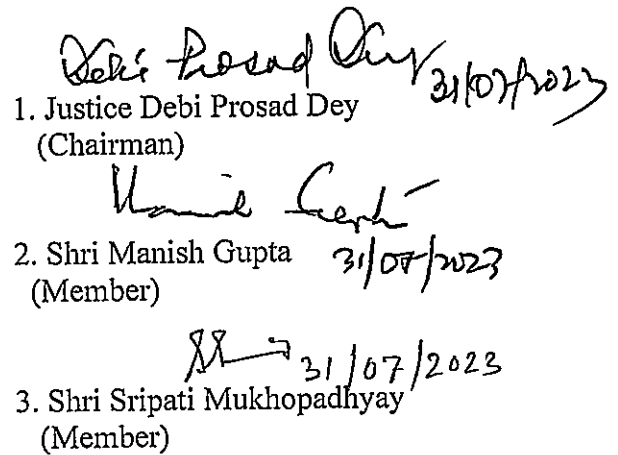 Debi Prosad Dey 31/07/2023
1. Justice Debi Prosad Dey
(Chairman)
Manish Gupta
2. Shri Manish Gupta 31/07/2023
(Member)
31/07/2023
3. Shri Sripati Mukhopadhyay
(Member)